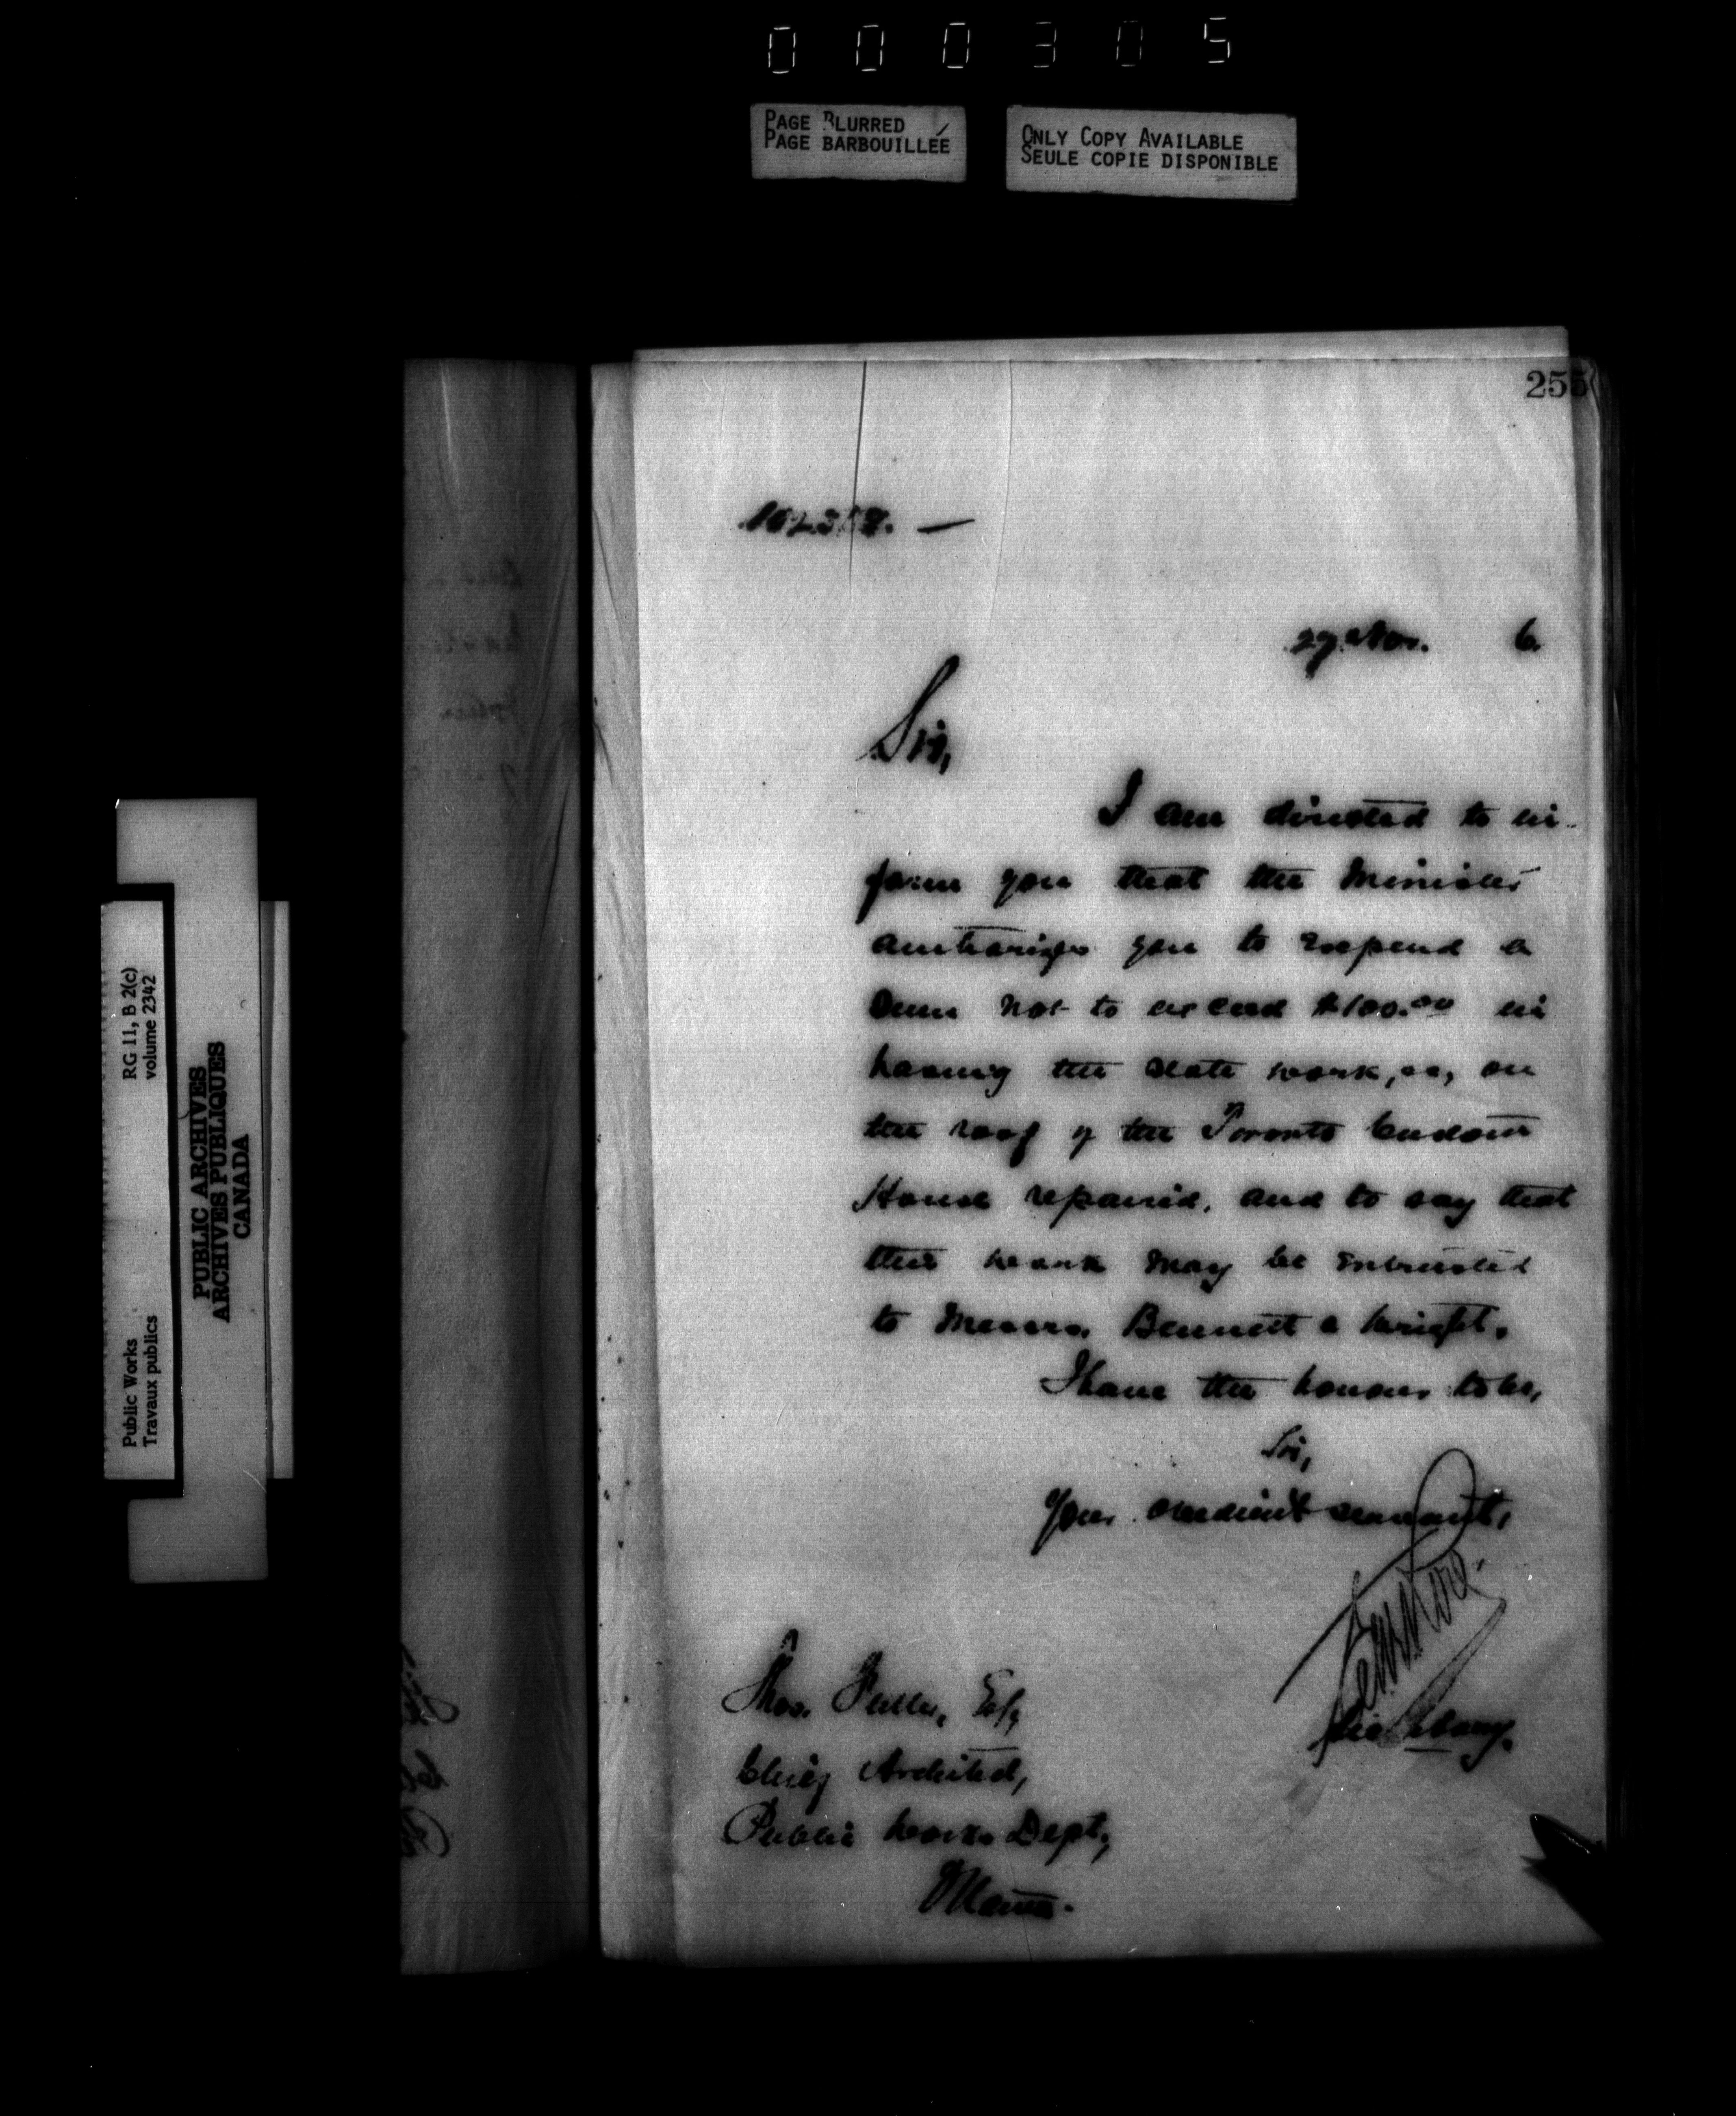 000305
PAGE BLURRED
PAGE BARBOUILLÉE
ONLY COPY AVAILABLE
SEULE COPIE DISPONIBLE
255
27 Nov. 6.
Sir,
I am directed to in-
form you that the Minister
authorizes you to expend a
sum not to exceed $100.00 in
having the slate work, &c, on
the roof of the Toronto Custom
House repaired, and to say that
this work may be intrusted
to Messrs. Bennett & Wright.
I have the honour to be,
Sir,
Your obedient servant,
Thos. Fuller, Esq,
Chief Architect,
Public Works Dept,
Ottawa.
RG 11, B 2(c)
volume 2342
Public Works
Travaux publics
PUBLIC ARCHIVES
ARCHIVES PUBLIQUES
CANADA